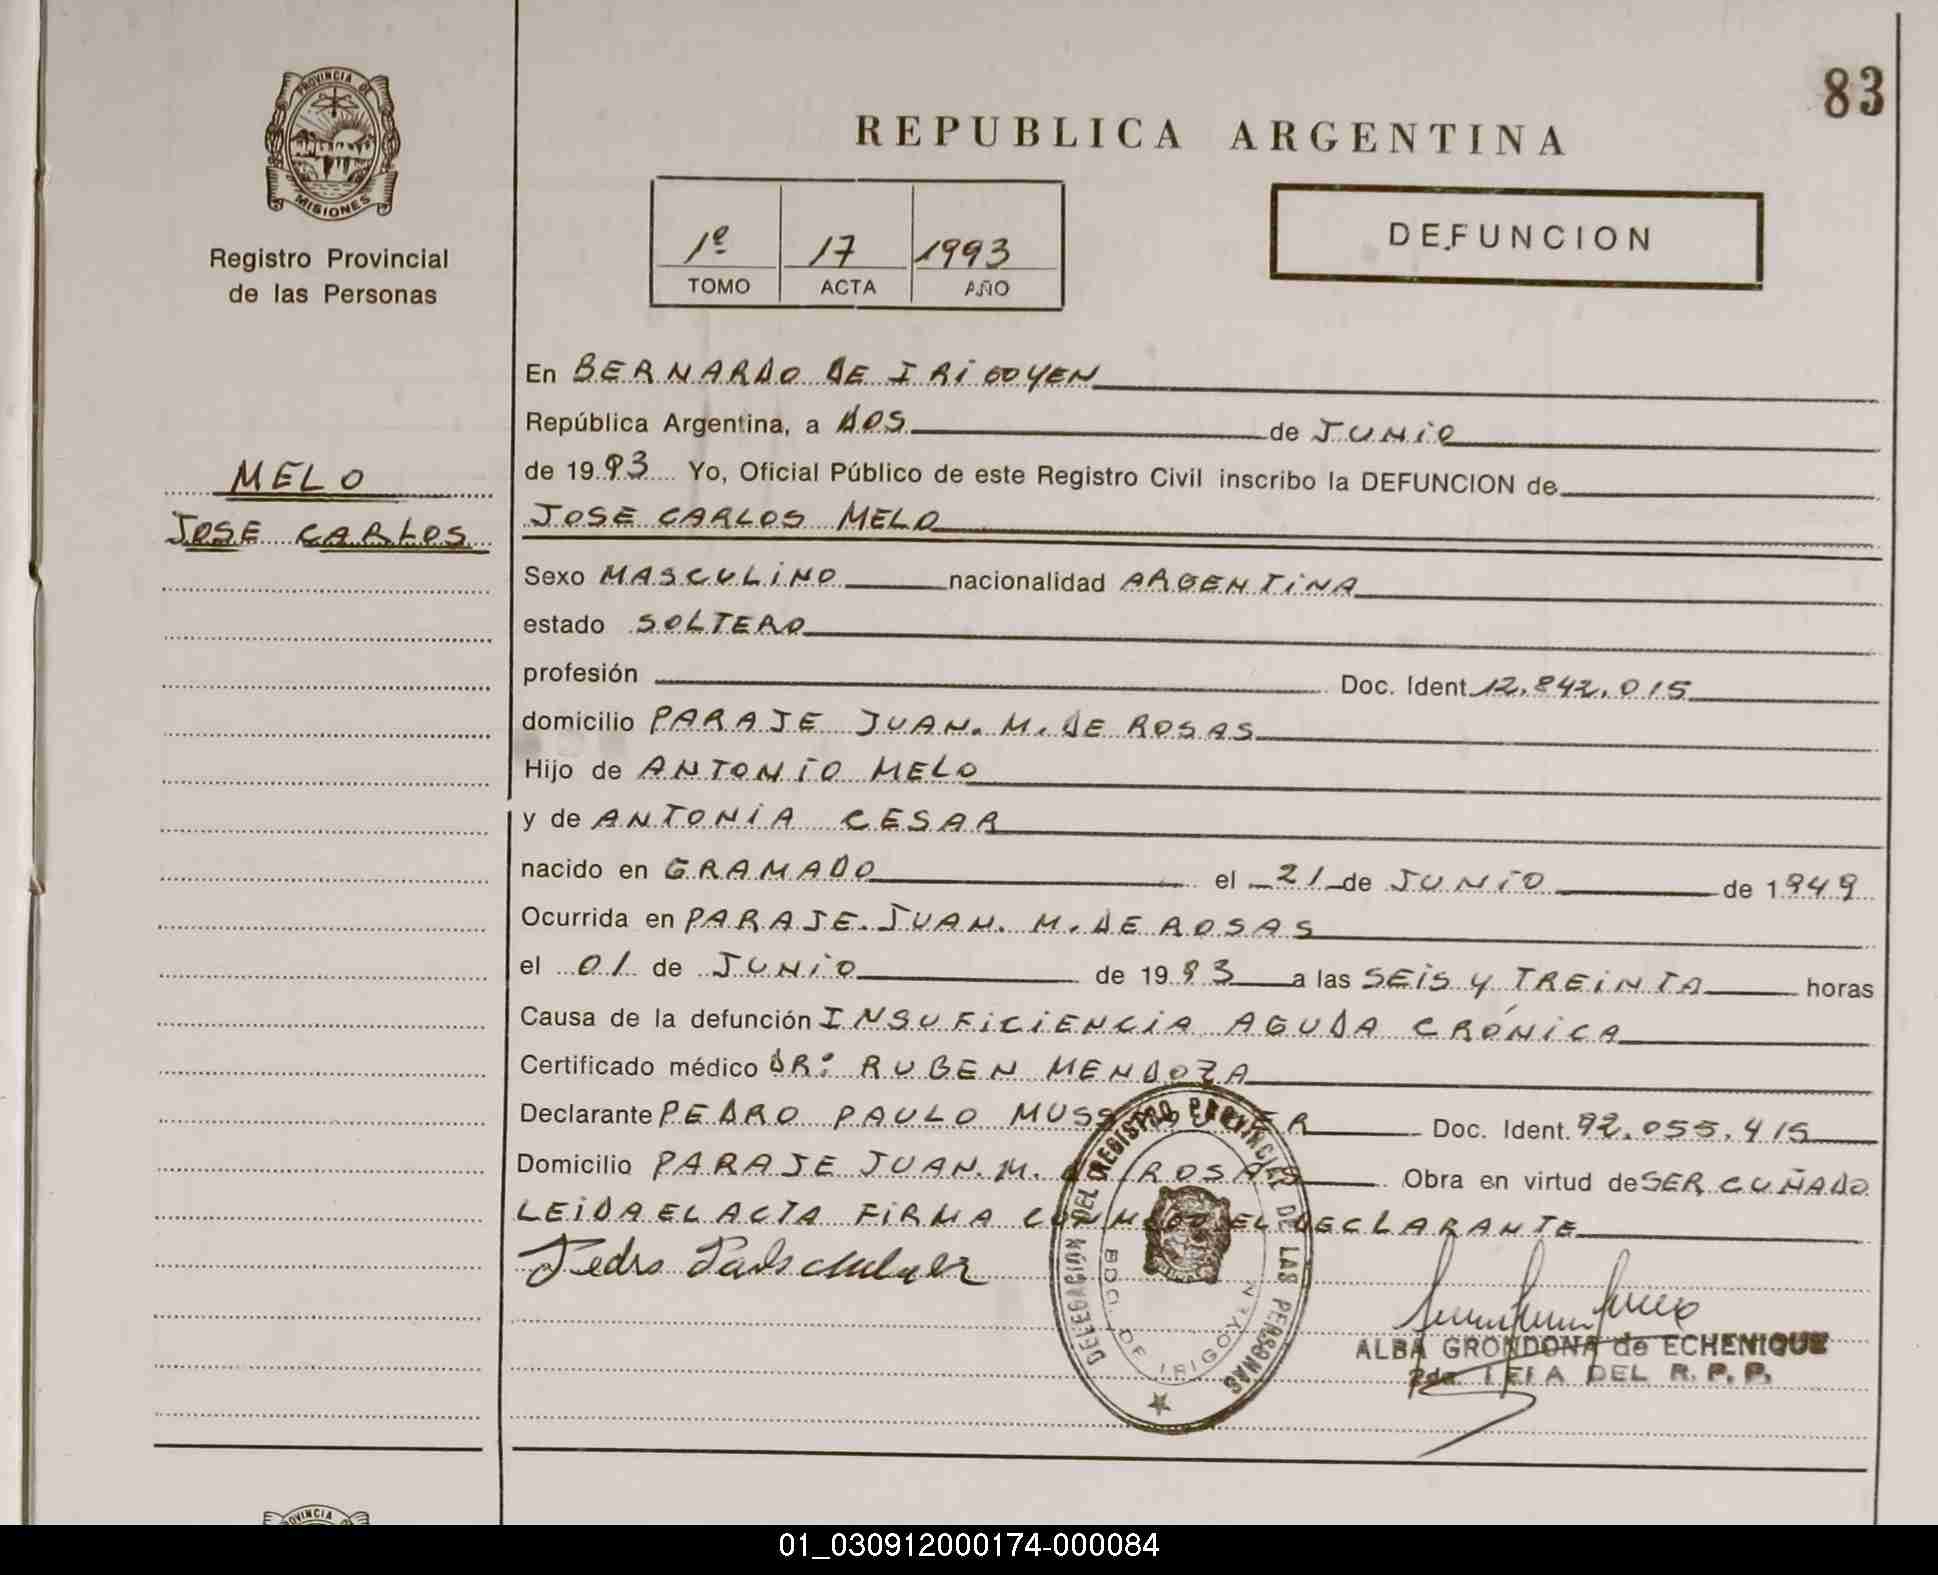 83
PROVINCIA DE
MISIONES
Registro Provincial
de las Personas
REPUBLICA ARGENTINA
1º 17 1993
TOMO ACTA AÑO
DEFUNCION
MELO
JOSE CARLOS
En BERNARDO DE IRIGOYEN
República Argentina, a DOS de JUNIO
de 1993 Yo, Oficial Público de este Registro Civil inscribo la DEFUNCION de
JOSE CARLOS MELO
Sexo MASCULINO nacionalidad ARGENTINA
estado SOLTERO
profesión Doc. Ident. 12.842.015
domicilio PARAJE JUAN. M. DE ROSAS
Hijo de ANTONIO MELO
y de ANTONIA CESAR
nacido en GRAMADO el 21 de JUNIO de 1949
Ocurrida en PARAJE JUAN. M. DE ROSAS
el 01 de JUNIO de 1993 a las SEIS Y TREINTA horas
Causa de la defunción INSUFICIENCIA AGUDA CRÓNICA
Certificado médico DR: RUBEN MENDOZA
Declarante PEDRO PAULO Doc. Ident. 92.055.415
Domicilio PARAJE JUAN. M. DE ROSAS Obra en virtud de SER CUÑADO
LEIDA EL ACTA FIRMA CONMIGO EL DECLARANTE
Pedro
DELEGACION DEL REGISTRO PROVINCIAL DE LAS PERSONAS
BDO. DE IRIGOYEN
ALBA GRONDONA de ECHENIQUE
2da. JEFA DEL R. P. P.
PROVINCIA
01_030912000174-000084